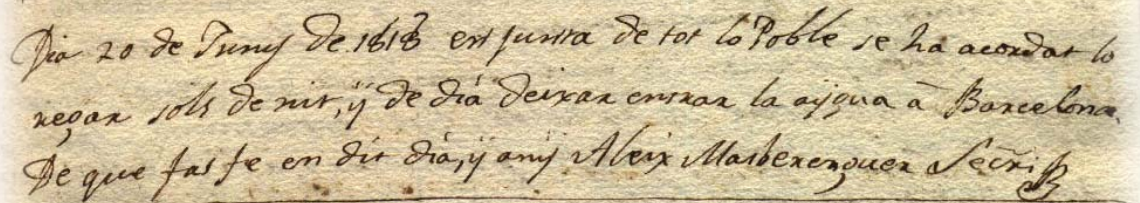 Dia 20 de Juny de 1818 en junta de tot lo Poble se ha acordat lo
regar sols de nit, ÿ de dia deixar entrar la aÿgua á Barcelona.
De que fas fe en dit dia, ÿ anÿ Aleix Masberenguer Secri